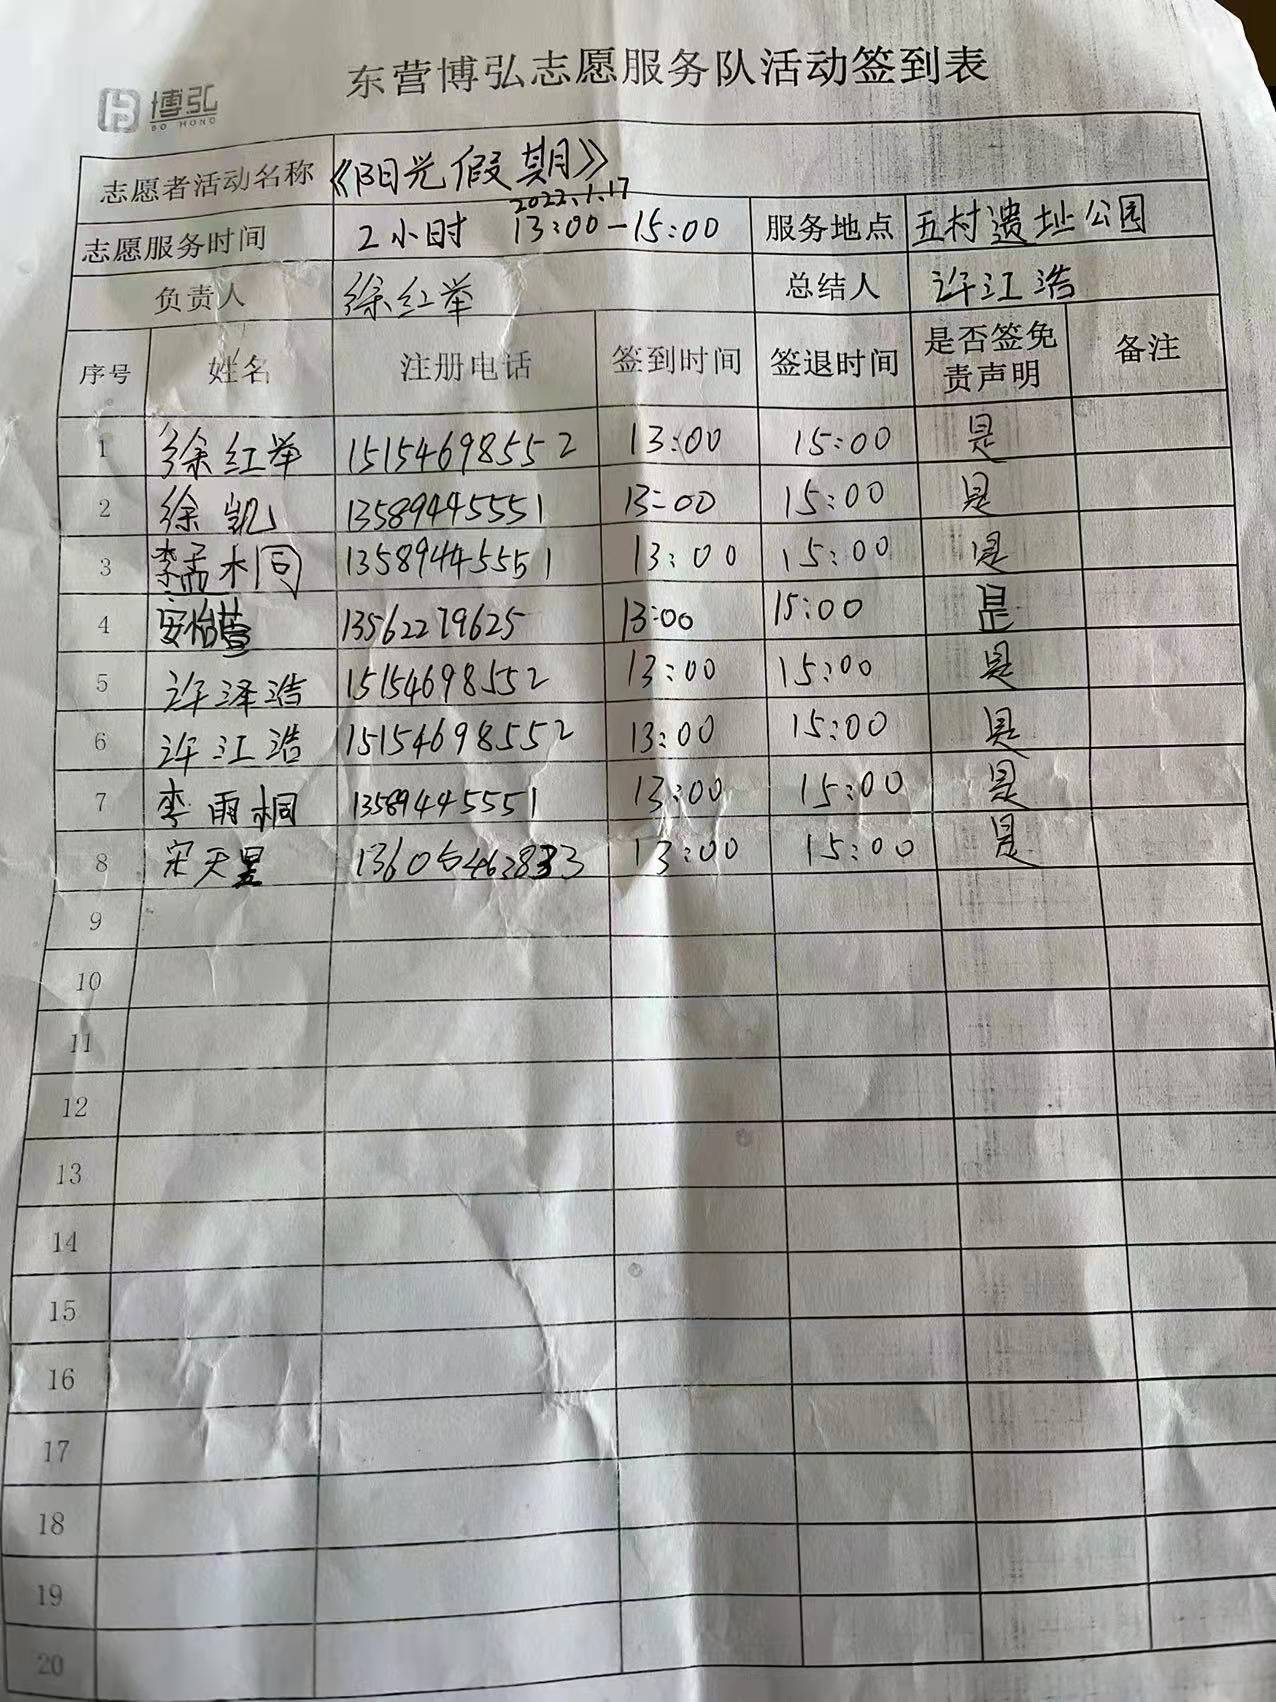 博弘
BO HONG
东营博弘志愿服务队活动签到表
志愿者活动名称 《阳光假期》
2022.1.17
志愿服务时间 2小时 13:00-15:00 服务地点 五村遗址公园
负责人 徐红举 总结人 许江浩
序号 姓名 注册电话 签到时间 签退时间 是否签免责声明 备注
1 徐红举 15154698552 13:00 15:00 是
2 徐凯 13589445551 13:00 15:00 是
3 李孟木同 13589445551 13:00 15:00 是
4 安怡萱 13562279625 13:00 15:00 是
5 许泽浩 15154698552 13:00 15:00 是
6 许江浩 15154698552 13:00 15:00 是
7 李雨桐 13589445551 13:00 15:00 是
8 宋天昱 13:00 15:00 是
9
10
11
12
13
14
15
16
17
18
19
20